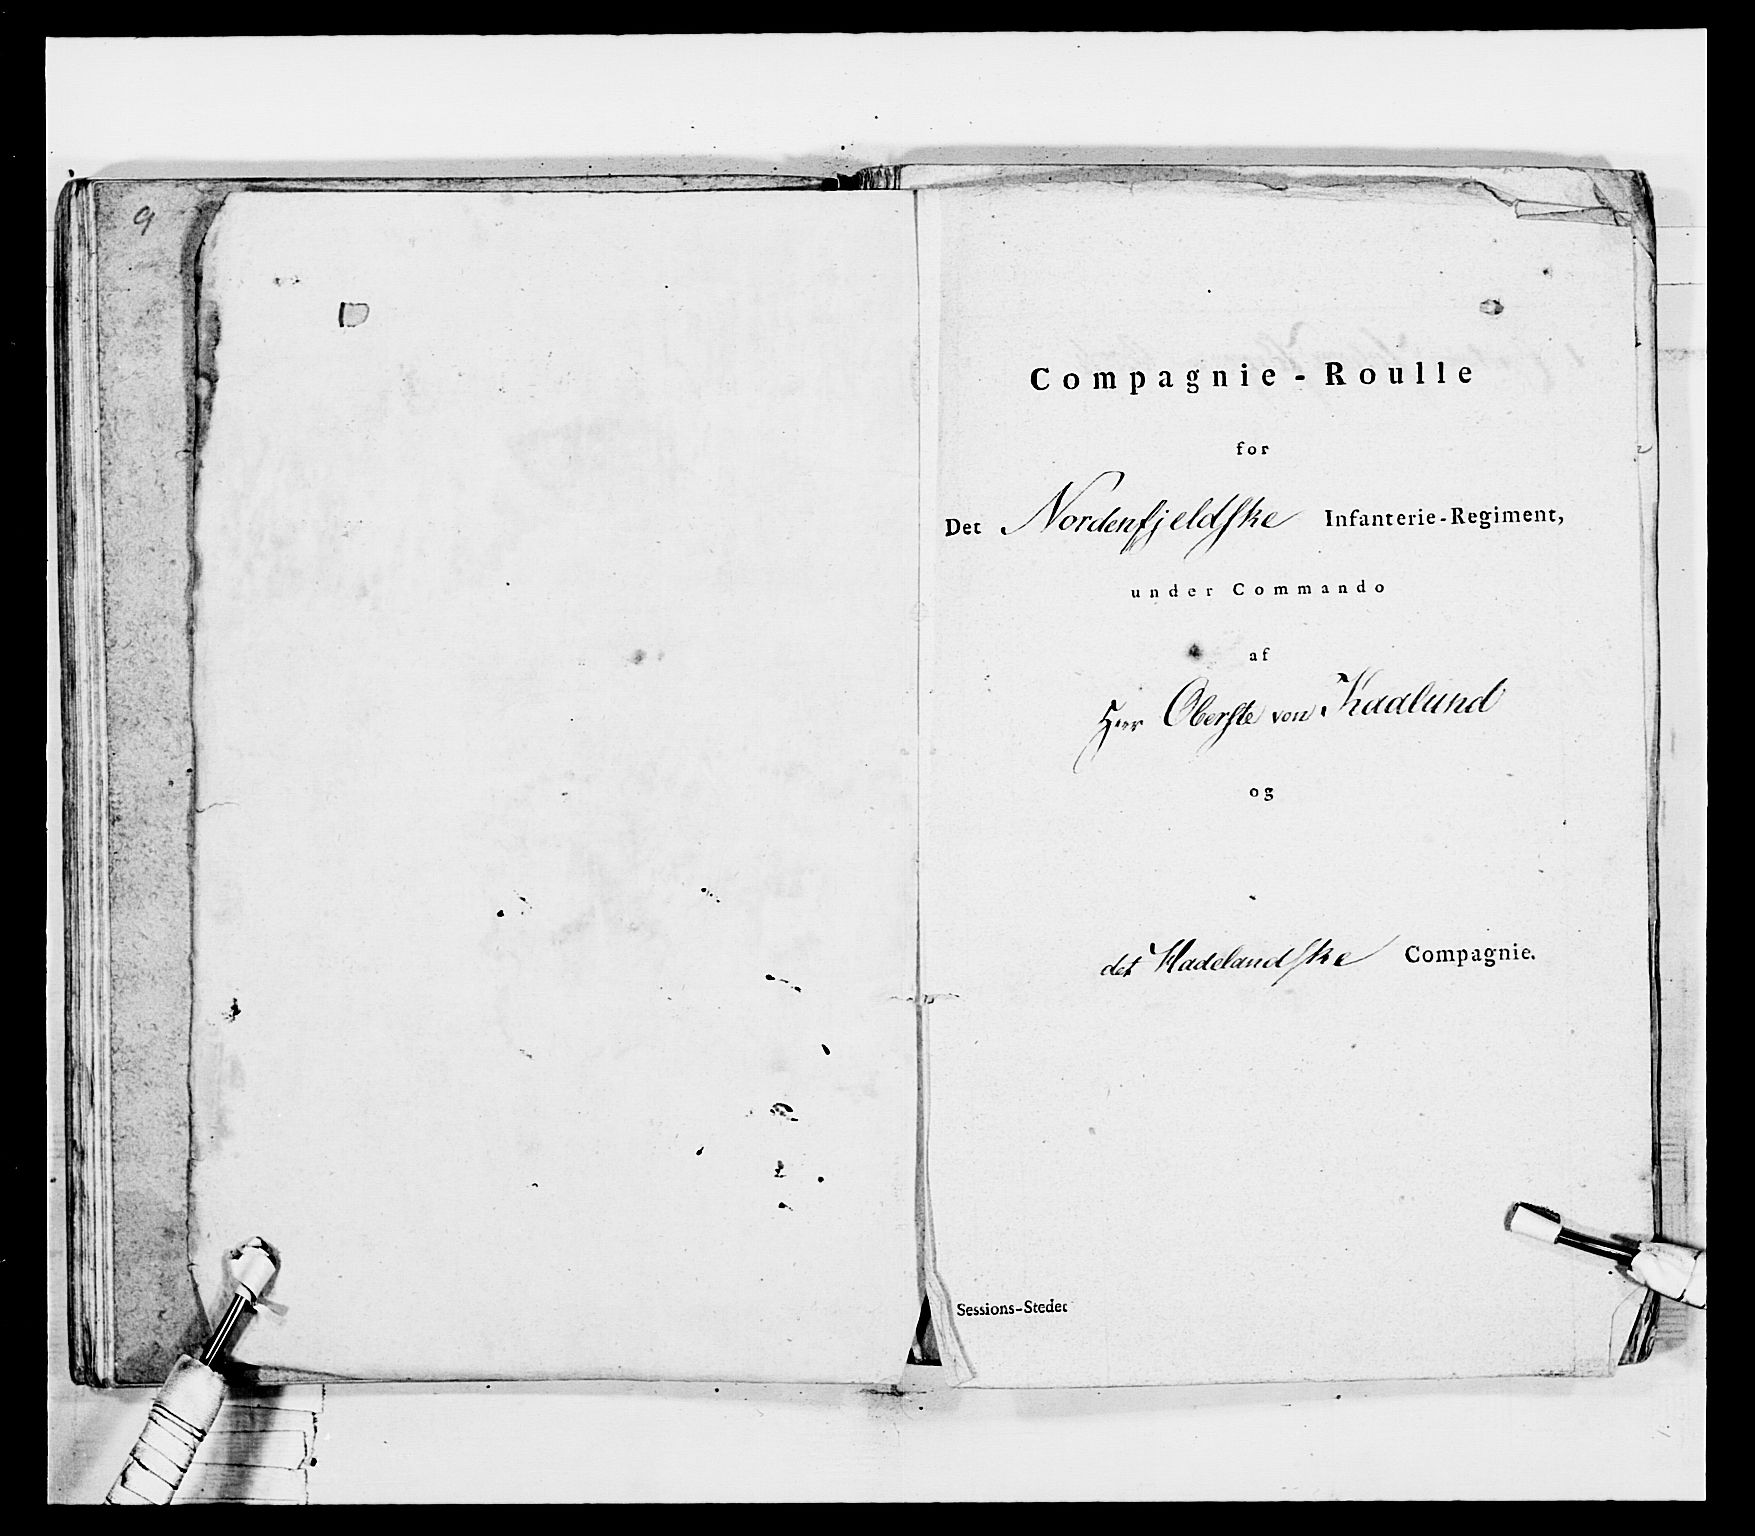 9
Compagnie-Roulle
for
Det Nordenfjeldske Infanterie-Regiment,
under Commando
af
Herr Oberste von Kaalund
og
det Hadelandske Compagnie.
Sessions-Stedet